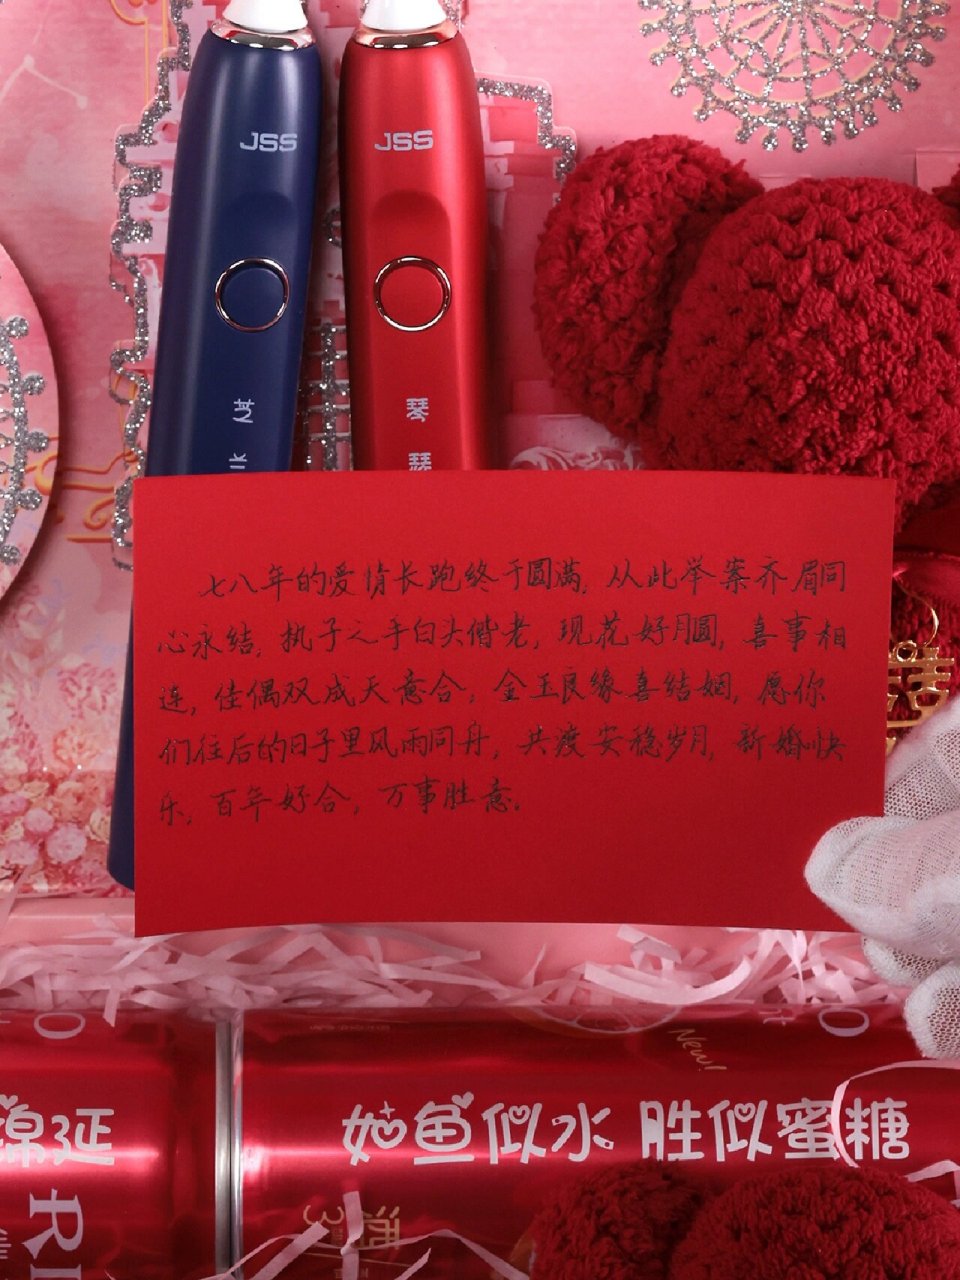 JSS JSS
芝 琴
琴
七八年的爱情长跑终于圆满, 从此举案齐眉同
心永结, 执子之手白头偕老, 现花好月圆, 喜事相
连, 佳偶双成天意合, 金玉良缘喜结姻, 愿你
们往后的日子里风雨同舟, 共渡安稳岁月, 新婚快
乐, 百年好合, 万事胜意.
New!
绵延
如鱼似水 胜似蜜糖
RI